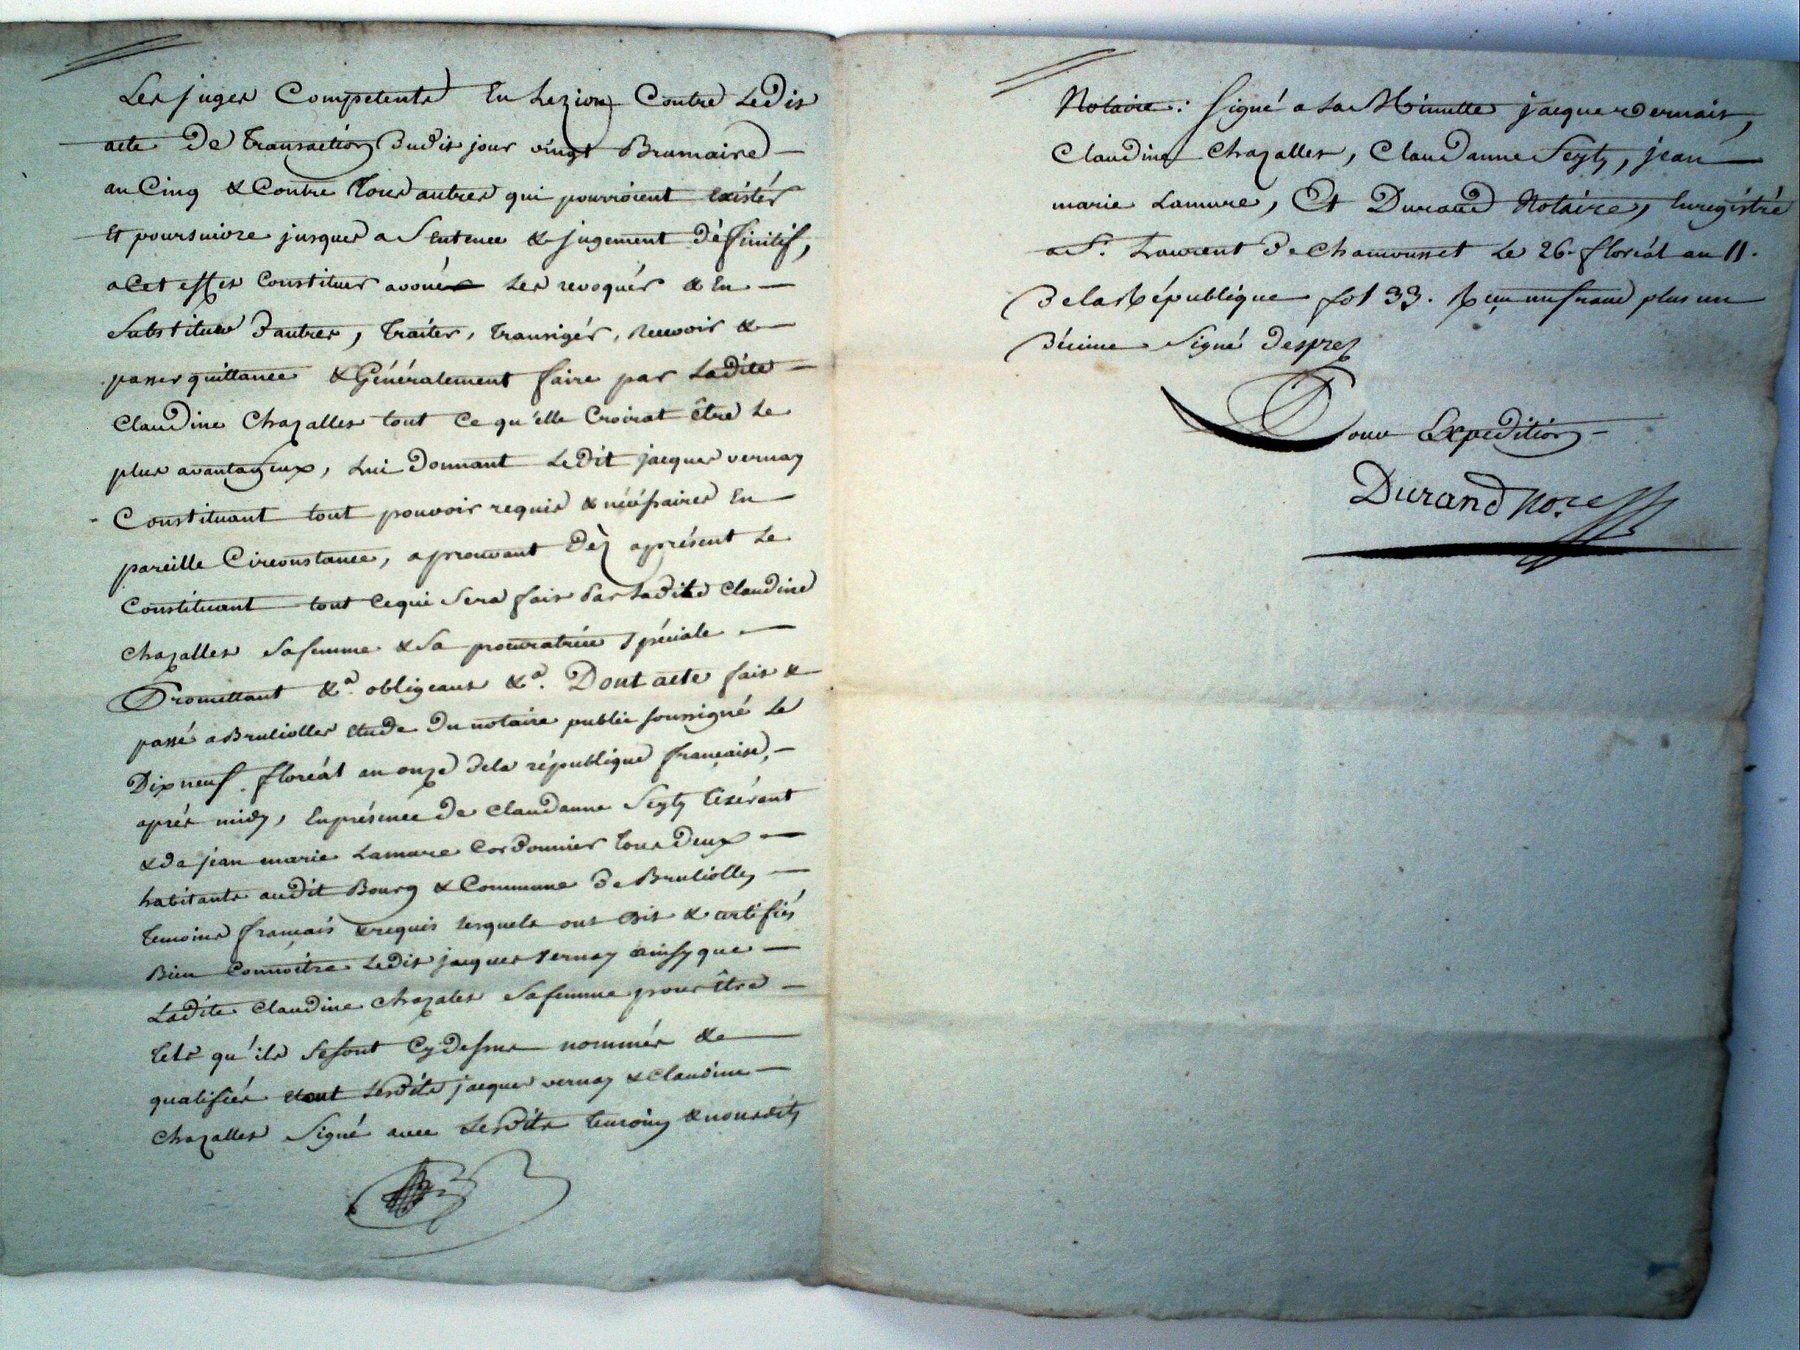 Les juges Competents En Lezion Contre Ledit
acte De Transaction Dudit jour vingt Brumaire
an Cinq & Contre Tous autres qui pourroient Existér
Et poursuivre jusques a Sentence & jugement Définitif,
a Cet effet Constituer avoués Les revoqués & En
Substituer Dautres, Traiter, Transigér, Recevoir &
passer quittance & Généralement faire par Ladite
Claudine Chazalles tout Ce qu'elle Croirat être Le
plus avantageux, Lui Donnant Ledit jacques vernay
Constituant tout pouvoir requis & nécéssaires En
pareille Circonstance, aprouvant Dèz aprésent Le
Constituant tout Cequi Sera fait Par Ladite Claudine
Chazalles Safemme & Sa procuratrice Spéciale
Promettant &a. obligeant &a. Dont acte fait &
passé a Brulioles Etude Du notaire public soussigné Le
Dix neuf floréal an onze Dela république française,
après midy, Enprésence De Claudanne Seyty Tisérant
& De jean marie Lamure Cordonnier Tous Deux
habitants audit Bourg & Commune De Bruliolles
Temoins français & requis Lesquels ont Dit & certifiés
Bien Connoitre Ledit jacques vernay ainsy que
Ladite Claudine Chazales Safemme pour être
Tels qu'ils Sesont Cydessus nommés &
qualifiés Et ont Lesdits jacques vernay & Claudine
Chazalles Signé avec Lesdits Temoins & nousdits
Notaire: Signé a La Minutte jacques vernais,
Claudine Chazalles, Claudanne Seyty, jean
marie Lamure, Et Durand Notaire, Enregistré
a St. Laurent De Chamousset Le 26. floréal an 11.
Dela République fol 33. Reçu un franc plus un
Décime Signé Desprez
Pour Expedition
Durand No.re